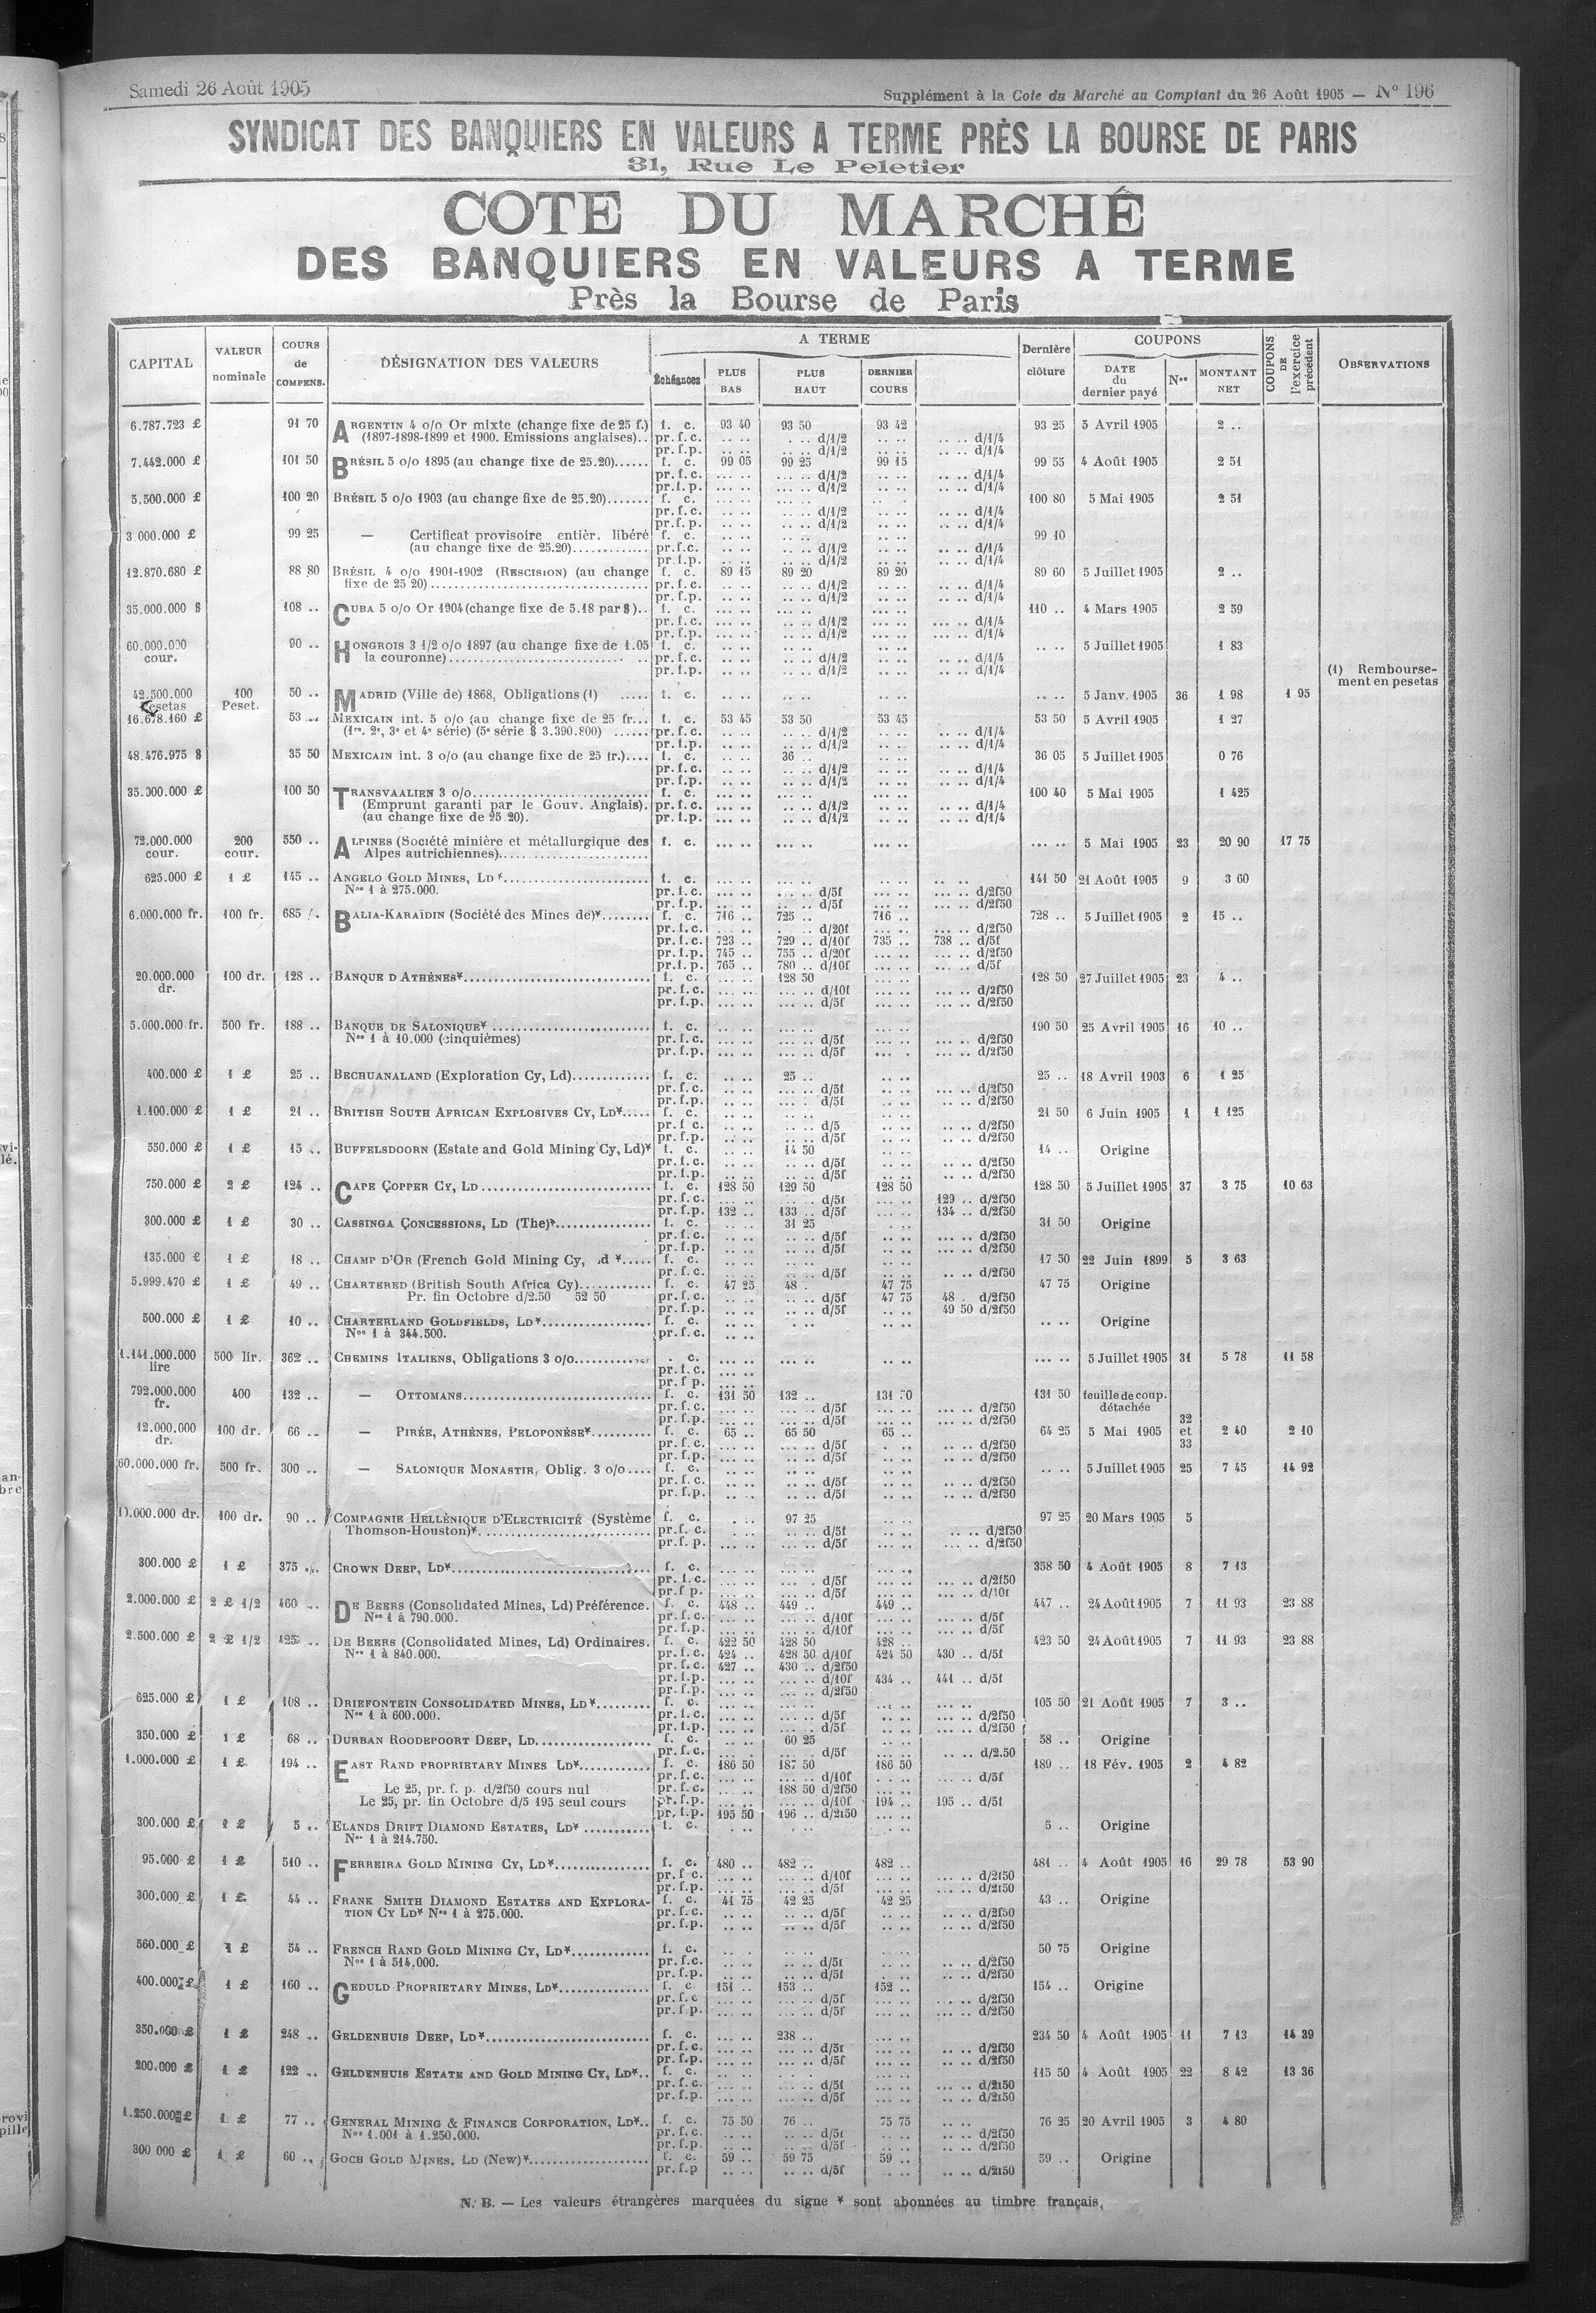 Samedi 26 Août 1905
Supplément à la Cote du Marché au Comptant du 26 Août 1905 — N° 196
SYNDICAT DES BANQUIERS EN VALEURS A TERME PRÈS LA BOURSE DE PARIS
31, Rue Le Peletier
COTE DU MARCHÉ
DES BANQUIERS EN VALEURS A TERME
Près la Bourse de Paris
CAPITAL VALEUR nominale COURS de COMPENS. DÉSIGNATION DES VALEURS A TERME Échéances PLUS BAS PLUS HAUT DERNIER COURS Dernière clôture COUPONS DATE du dernier payé Nos MONTANT NET COUPONS DE l'exercice précédent OBSERVATIONS
6.787.723 £ 91 70 ARGENTIN 4 o/o Or mixte (change fixe de 25 f.) f. c. 93 40 93 50 93 42 93 25 5 Avril 1905 2 ..
(1897-1898-1899 et 1900. Emissions anglaises).. pr. f. c. .. .. .. .. d/1/2 .. .. .. .. d/1/4
pr. f. p. .. .. .. .. d/1/2 .. .. .. .. d/1/4
7.442.000 £ 101 50 BRÉSIL 5 o/o 1895 (au change fixe de 25.20)...... f. c. 99 05 99 25 99 15 99 55 4 Août 1905 2 51
pr. f. c. .. .. d/1/2 .. .. d/1/4
pr. f. p. .. .. d/1/2 .. .. d/1/4
5.500.000 £ 100 20 BRÉSIL 5 o/o 1903 (au change fixe de 25.20)....... f. c. 100 80 5 Mai 1905 2 51
pr. f. c. .. .. d/1/2 .. .. d/1/4
pr. f. p. .. .. d/1/2 .. .. d/1/4
3.000.000 £ 99 25 — Certificat provisoire entièr. libéré f. c. 99 10
(au change fixe de 25.20)............. pr. f. c. .. .. d/1/2 .. .. d/1/4
pr. f. p. .. .. d/1/2 .. .. d/1/4
12.870.680 £ 88 80 BRÉSIL 4 o/o 1901-1902 (RESCISION) (au change f. c. 89 15 89 20 89 20 89 60 5 Juillet 1905 2 ..
fixe de 25 20)................ pr. f. c. .. .. d/1/2 .. .. d/1/4
pr. f. p. .. .. d/1/2 .. .. d/1/4
35.000.000 $ 108 .. CUBA 5 o/o Or 1904 (change fixe de 5.18 par $).. f. c. 110 .. 4 Mars 1905 2 59
pr. f. c. .. .. d/1/2 .. .. d/1/4
pr. f. p. .. .. d/1/2 .. .. d/1/4
60.000.000 cour. 90 .. HONGROIS 3 1/2 o/o 1897 (au change fixe de 1.05 f. c. .. .. 5 Juillet 1905 1 83
la couronne)................ pr. f. c. .. .. d/1/2 .. .. d/1/4
pr. f. p. .. .. d/1/2 .. .. d/1/4
(1) Remboursement en pesetas
42.500.000 pesetas 100 Peset. 50 .. MADRID (Ville de) 1868, Obligations (1) ..... f. c. .. .. 5 Janv. 1905 36 1 98 1 95
16.678.160 £ 53 .. MEXICAIN int. 5 o/o (au change fixe de 25 fr... f. c. 53 45 53 50 53 45 53 50 5 Avril 1905 1 27
(1re, 2e, 3e et 4e série) (5e série $ 3.390.800) ...... pr. f. c. .. .. d/1/2 .. .. d/1/4
pr. f. p. .. .. d/1/2 .. .. d/1/4
48.476.975 $ 35 50 MEXICAIN int. 3 o/o (au change fixe de 25 fr.).... f. c. 36 .. 36 05 5 Juillet 1905 0 76
pr. f. c. .. .. d/1/2 .. .. d/1/4
pr. f. p. .. .. d/1/2 .. .. d/1/4
35.000.000 £ 100 50 TRANSVAALIEN 3 o/o................ f. c. 100 40 5 Mai 1905 1 425
(Emprunt garanti par le Gouv. Anglais). pr. f. c. .. .. d/1/2 .. .. d/1/4
(au change fixe de 25.20). pr. f. p. .. .. d/1/2 .. .. d/1/4
72.000.000 cour. 200 cour. 550 .. ALPINES (Société minière et métallurgique des f. c. .. .. 5 Mai 1905 23 20 90 17 75
Alpes autrichiennes)................
625.000 £ 1 £ 145 .. ANGELO GOLD MINES, LD*................ f. c. 141 50 21 Août 1905 9 3 60
Nos 1 à 275.000. pr. f. c. .. .. d/5f .. .. d/2f50
pr. f. p. .. .. d/5f .. .. d/2f50
6.000.000 fr. 100 fr. 685 .. BALIA-KARAÏDIN (Société des Mines de)*........ f. c. 716 .. 725 .. 716 .. 728 .. 5 Juillet 1905 2 15 ..
pr. f. c. .. .. d/20f .. .. d/2f50
pr. f. c. 723 .. 729 .. d/10f 735 .. 738 .. d/5f
pr. f. p. 745 .. 755 .. d/20f .. .. d/2f50
pr. f. p. 765 .. 780 .. d/10f .. .. d/5f
20.000.000 dr. 100 dr. 128 .. BANQUE D'ATHÈNES*................ f. c. 128 50 128 50 27 Juillet 1905 23 4 ..
pr. f. c. .. .. d/10f .. .. d/2f50
pr. f. p. .. .. d/5f .. .. d/2f50
5.000.000 fr. 500 fr. 188 .. BANQUE DE SALONIQUE*................ f. c. 190 50 25 Avril 1905 16 10 ..
Nos 1 à 10.000 (cinquièmes) pr. f. c. .. .. d/5f .. .. d/2f50
pr. f. p. .. .. d/5f .. .. d/2f50
400.000 £ 1 £ 25 .. BECHUANALAND (Exploration Cy, Ld)............. f. c. 25 .. 25 .. 18 Avril 1903 6 1 25
pr. f. c. .. .. d/5f .. .. d/2f50
pr. f. p. .. .. d/5f .. .. d/2f50
1.100.000 £ 1 £ 21 .. BRITISH SOUTH AFRICAN EXPLOSIVES CY, LD*..... f. c. 21 50 6 Juin 1905 1 1 125
pr. f. c. .. .. d/5 .. .. d/2f50
pr. f. p. .. .. d/5f .. .. d/2f50
550.000 £ 1 £ 15 .. BUFFELSDOORN (Estate and Gold Mining Cy, Ld)* f. c. 14 50 14 .. Origine
pr. f. c. .. .. d/5f .. .. d/2f50
pr. f. p. .. .. d/5f .. .. d/2f50
750.000 £ 2 £ 124 .. CAPE COPPER CY, LD................ f. c. 128 50 129 50 128 50 128 50 5 Juillet 1905 37 3 75 10 63
pr. f. c. .. .. d/5f 129 .. d/2f50
pr. f. p. 132 .. 133 .. d/5f 134 .. d/2f50
300.000 £ 1 £ 30 .. CASSINGA CONCESSIONS, LD (The)*................ f. c. 31 25 31 50 Origine
pr. f. c. .. .. d/5f .. .. d/2f50
pr. f. p. .. .. d/5f .. .. d/2f50
135.000 £ 1 £ 18 .. CHAMP D'OR (French Gold Mining Cy, Ld *..... f. c. 17 50 22 Juin 1899 5 3 63
pr. f. c. .. .. d/5f .. .. d/2f50
5.999.470 £ 1 £ 49 .. CHARTERED (British South Africa Cy)............ f. c. 47 25 48 . 47 75 47 75 Origine
Pr. fin Octobre d/2.50 52 50 pr. f. c. .. .. d/5f 47 75 48 . d/2f50
pr. f. p. .. .. d/5f 49 50 d/2f50
500.000 £ 1 £ 10 .. CHARTERLAND GOLDFIELDS, LD*................ f. c. .. .. Origine
Nos 1 à 344.500. pr. f. c. .. ..
1.141.000.000 lire 500 lir. 362 .. CHEMINS ITALIENS, Obligations 3 o/o........... . c. .. .. 5 Juillet 1905 31 5 78 11 58
pr. f. c. .. ..
pr. f. p. .. ..
792.000.000 fr. 400 132 .. — OTTOMANS................ f. c. 131 50 132 .. 131 50 131 50 feuille de coup. détachée
pr. f. c. .. .. d/5f .. .. d/2f50
pr. f. p. .. .. d/5f .. .. d/2f50
12.000.000 dr. 100 dr. 66 .. — PIRÉE, ATHÈNES, PELOPONÈSE*.......... f. c. 65 .. 65 50 65 .. 64 25 5 Mai 1905 32 et 33 2 40 2 10
pr. f. c. .. .. d/5f .. .. d/2f50
pr. f. p. .. .. d/5f .. .. d/2f50
60.000.000 fr. 500 fr. 300 .. — SALONIQUE MONASTIR, Oblig. 3 o/o.... f. c. .. .. 5 Juillet 1905 25 7 45 14 92
pr. f. c. .. .. d/5f .. .. d/2f50
pr. f. p. .. .. d/5f .. .. d/2f50
10.000.000 dr. 100 dr. 90 .. COMPAGNIE HELLÉNIQUE D'ELECTRICITÉ (Système f. c. 97 25 97 25 20 Mars 1905 5
Thomson-Houston)*................ pr. f. c. .. .. d/5f .. .. d/2f50
pr. f. p. .. .. d/5f .. .. d/2f50
300.000 £ 1 £ 375 .. CROWN DEEP, LD*................ f. c. 358 50 4 Août 1905 8 7 13
pr. f. c. .. .. d/5f .. .. d/2f50
pr. f. p. .. .. d/5f .. .. d/10f
2.000.000 £ 2 £ 1/2 460 .. DE BEERS (Consolidated Mines, Ld) Préférence. f. c. 448 .. 449 .. 449 .. 447 .. 24 Août 1905 7 11 93 23 88
Nos 1 à 790.000. pr. f. c. .. .. d/10f .. .. d/5f
pr. f. p. .. .. d/10f .. .. d/5f
2.500.000 £ 2 £ 1/2 425 .. DE BEERS (Consolidated Mines, Ld) Ordinaires. f. c. 422 50 428 50 428 .. 423 50 24 Août 1905 7 11 93 23 88
Nos 1 à 840.000. pr. f. c. 424 .. 428 50 d/10f 424 50 430 .. d/5f
pr. f. c. 427 .. 430 .. d/2f50
pr. f. p. .. .. d/10f 434 .. 441 .. d/5f
pr. f. p. .. .. d/2f50
625.000 £ 1 £ 108 .. DRIEFONTEIN CONSOLIDATED MINES, LD*......... f. c. 105 50 21 Août 1905 7 3 ..
Nos 1 à 600.000. pr. f. c. .. .. d/5f .. .. d/2f50
pr. f. p. .. .. d/5f .. .. d/2f50
350.000 £ 1 £ 68 .. DURBAN ROODEPOORT DEEP, LD................ f. c. 60 25 58 .. Origine
pr. f. c. .. .. d/5f .. .. d/2.50
1.000.000 £ 1 £ 194 .. EAST RAND PROPRIETARY MINES LD*............ f. c. 186 50 187 50 186 50 189 .. 18 Fév. 1905 2 4 82
pr. f. c. .. .. d/10f .. .. d/5f
Le 25, pr. f. p. d/2f50 cours nul pr. f. c. 188 50 d/2f50
Le 25, pr. fin Octobre d/5 195 seul cours pr. f. p. .. .. d/10f 194 .. 195 .. d/5f
pr. f. p. 195 50 196 .. d/2f50
300.000 £ 1 £ 5 .. ELANDS DRIFT DIAMOND ESTATES, LD*........... f. c. 5 .. Origine
Nos 1 à 214.750.
95.000 £ 1 £ 510 .. FERREIRA GOLD MINING CY, LD*................ f. c. 480 .. 482 .. 482 .. 481 .. 4 Août 1905 16 29 78 53 90
pr. f. c. .. .. d/10f .. .. d/2f50
pr. f. p. .. .. d/5f .. .. d/2f50
300.000 £ 1 £ 44 .. FRANK SMITH DIAMOND ESTATES AND EXPLORA- f. c. 41 75 42 25 42 25 43 .. Origine
TION CY LD* Nos 1 à 275.000. pr. f. c. .. .. d/5f .. .. d/2f50
pr. f. p. .. .. d/5f .. .. d/2f50
560.000 £ 1 £ 54 .. FRENCH RAND GOLD MINING CY, LD*............. f. c. 50 75 Origine
Nos 1 à 514.000. pr. f. c. .. .. d/5f .. .. d/2f50
pr. f. p. .. .. d/5f .. .. d/2f50
400.000 £ 1 £ 160 .. GEDULD PROPRIETARY MINES, LD*................ f. c. 151 .. 153 .. 152 .. 154 .. Origine
pr. f. c. .. .. d/5f .. .. d/2f50
pr. f. p. .. .. d/5f .. .. d/2f50
350.000 £ 1 £ 248 .. GELDENHUIS DEEP, LD*................ f. c. 238 .. 234 50 4 Août 1905 11 7 13 14 39
pr. f. c. .. .. d/5f .. .. d/2f50
pr. f. p. .. .. d/5f .. .. d/2f50
200.000 £ 1 £ 122 .. GELDENHUIS ESTATE AND GOLD MINING CY, LD*.. f. c. 115 50 4 Août 1905 22 8 42 13 36
pr. f. c. .. .. d/5f .. .. d/2f50
pr. f. p. .. .. d/5f .. .. d/2f50
1.250.000 £ 1 £ 77 .. GENERAL MINING & FINANCE CORPORATION, LD*.. f. c. 75 50 76 .. 75 75 76 25 20 Avril 1905 3 4 80
Nos 1.001 à 1.250.000. pr. f. c. .. .. d/5f .. .. d/2f50
pr. f. p. .. .. d/5f .. .. d/2f50
300 000 £ 1 £ 60 .. GOCH GOLD MINES, LD (New)*................ f. c. 59 .. 59 75 59 .. 59 .. Origine
pr. f. p .. .. d/5f .. .. d/2f50
N. B. — Les valeurs étrangères marquées du signe * sont abonnées au timbre français.